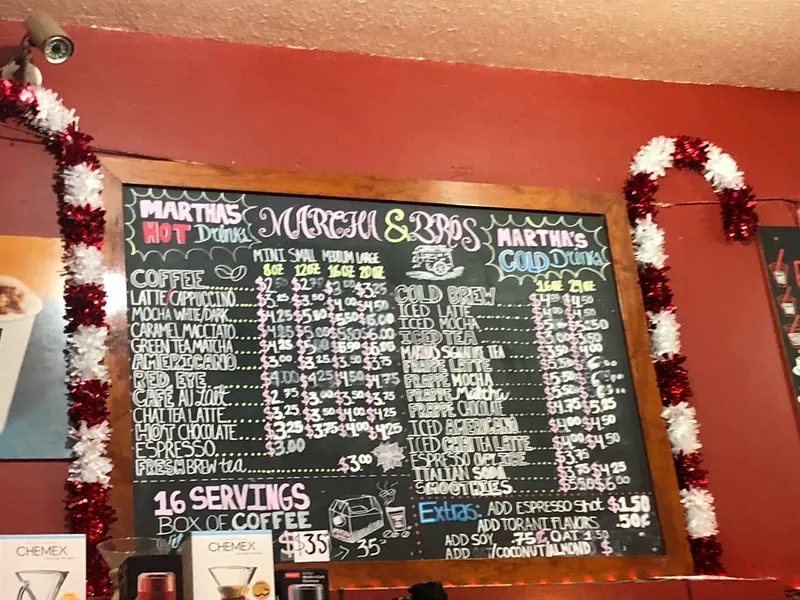 MARTHA'S
HOT Drinks
MARTHA & BROS
MARTHA'S
COLD Drinks
MINI SMALL MEDIUM LARGE
8OZ 12OZ 16OZ 20OZ
COFFEE $3.25
LATTE/CAPPUCCINO $3.25 $3.50 $4.00 $4.50
MOCHA WHITE/DARK $4.25 $5.00 $5.50 $6.00
CARAMEL MACCIATO $4.25 $5.00 $5.50 $6.00
GREEN TEA MATCHA $4.25 $6.00
AMERICANO $3.00 $3.25 $3.50 $3.75
RED EYE $4.00 $4.25 $4.50 $4.75
CAFE AU Lait $2.75 $3.00 $3.50 $3.75
CHAI TEA LATTE $3.25 $3.50 $4.00 $4.25
HOT CHOCOLATE $3.25 $3.75 $4.00 $4.25
ESPRESSO $3.00
FRESH BREW tea $3.00
16 SERVINGS
BOX OF COFFEE
$35
35
16OZ 24OZ
COLD BREW $4.50
ICED LATTE $4.50
ICED MOCHA $5.50
ICED TEA $3.50
MARTHA'S SIGNATURE TEA $4.00
FRAPPE LATTE
FRAPPE MOCHA
FRAPPE Matcha
FRAPPE CHOCOLATE $4.75 $5.25
ICED AMERICANO $4.00 $4.50
ICED CHAI TEA LATTE $4.00 $4.50
ESPRESSO OVER ICE $3.75
ITALIAN SODA $3.75 $4.25
SMOOTHIES $5.50 $6.00
Extras: ADD ESPRESSO Shot $1.50
ADD TORANI FLAVORS .50¢
ADD SOY .75¢ OAT 1.50
ADD /COCONUT/ALMOND $
CHEMEX
CHEMEX